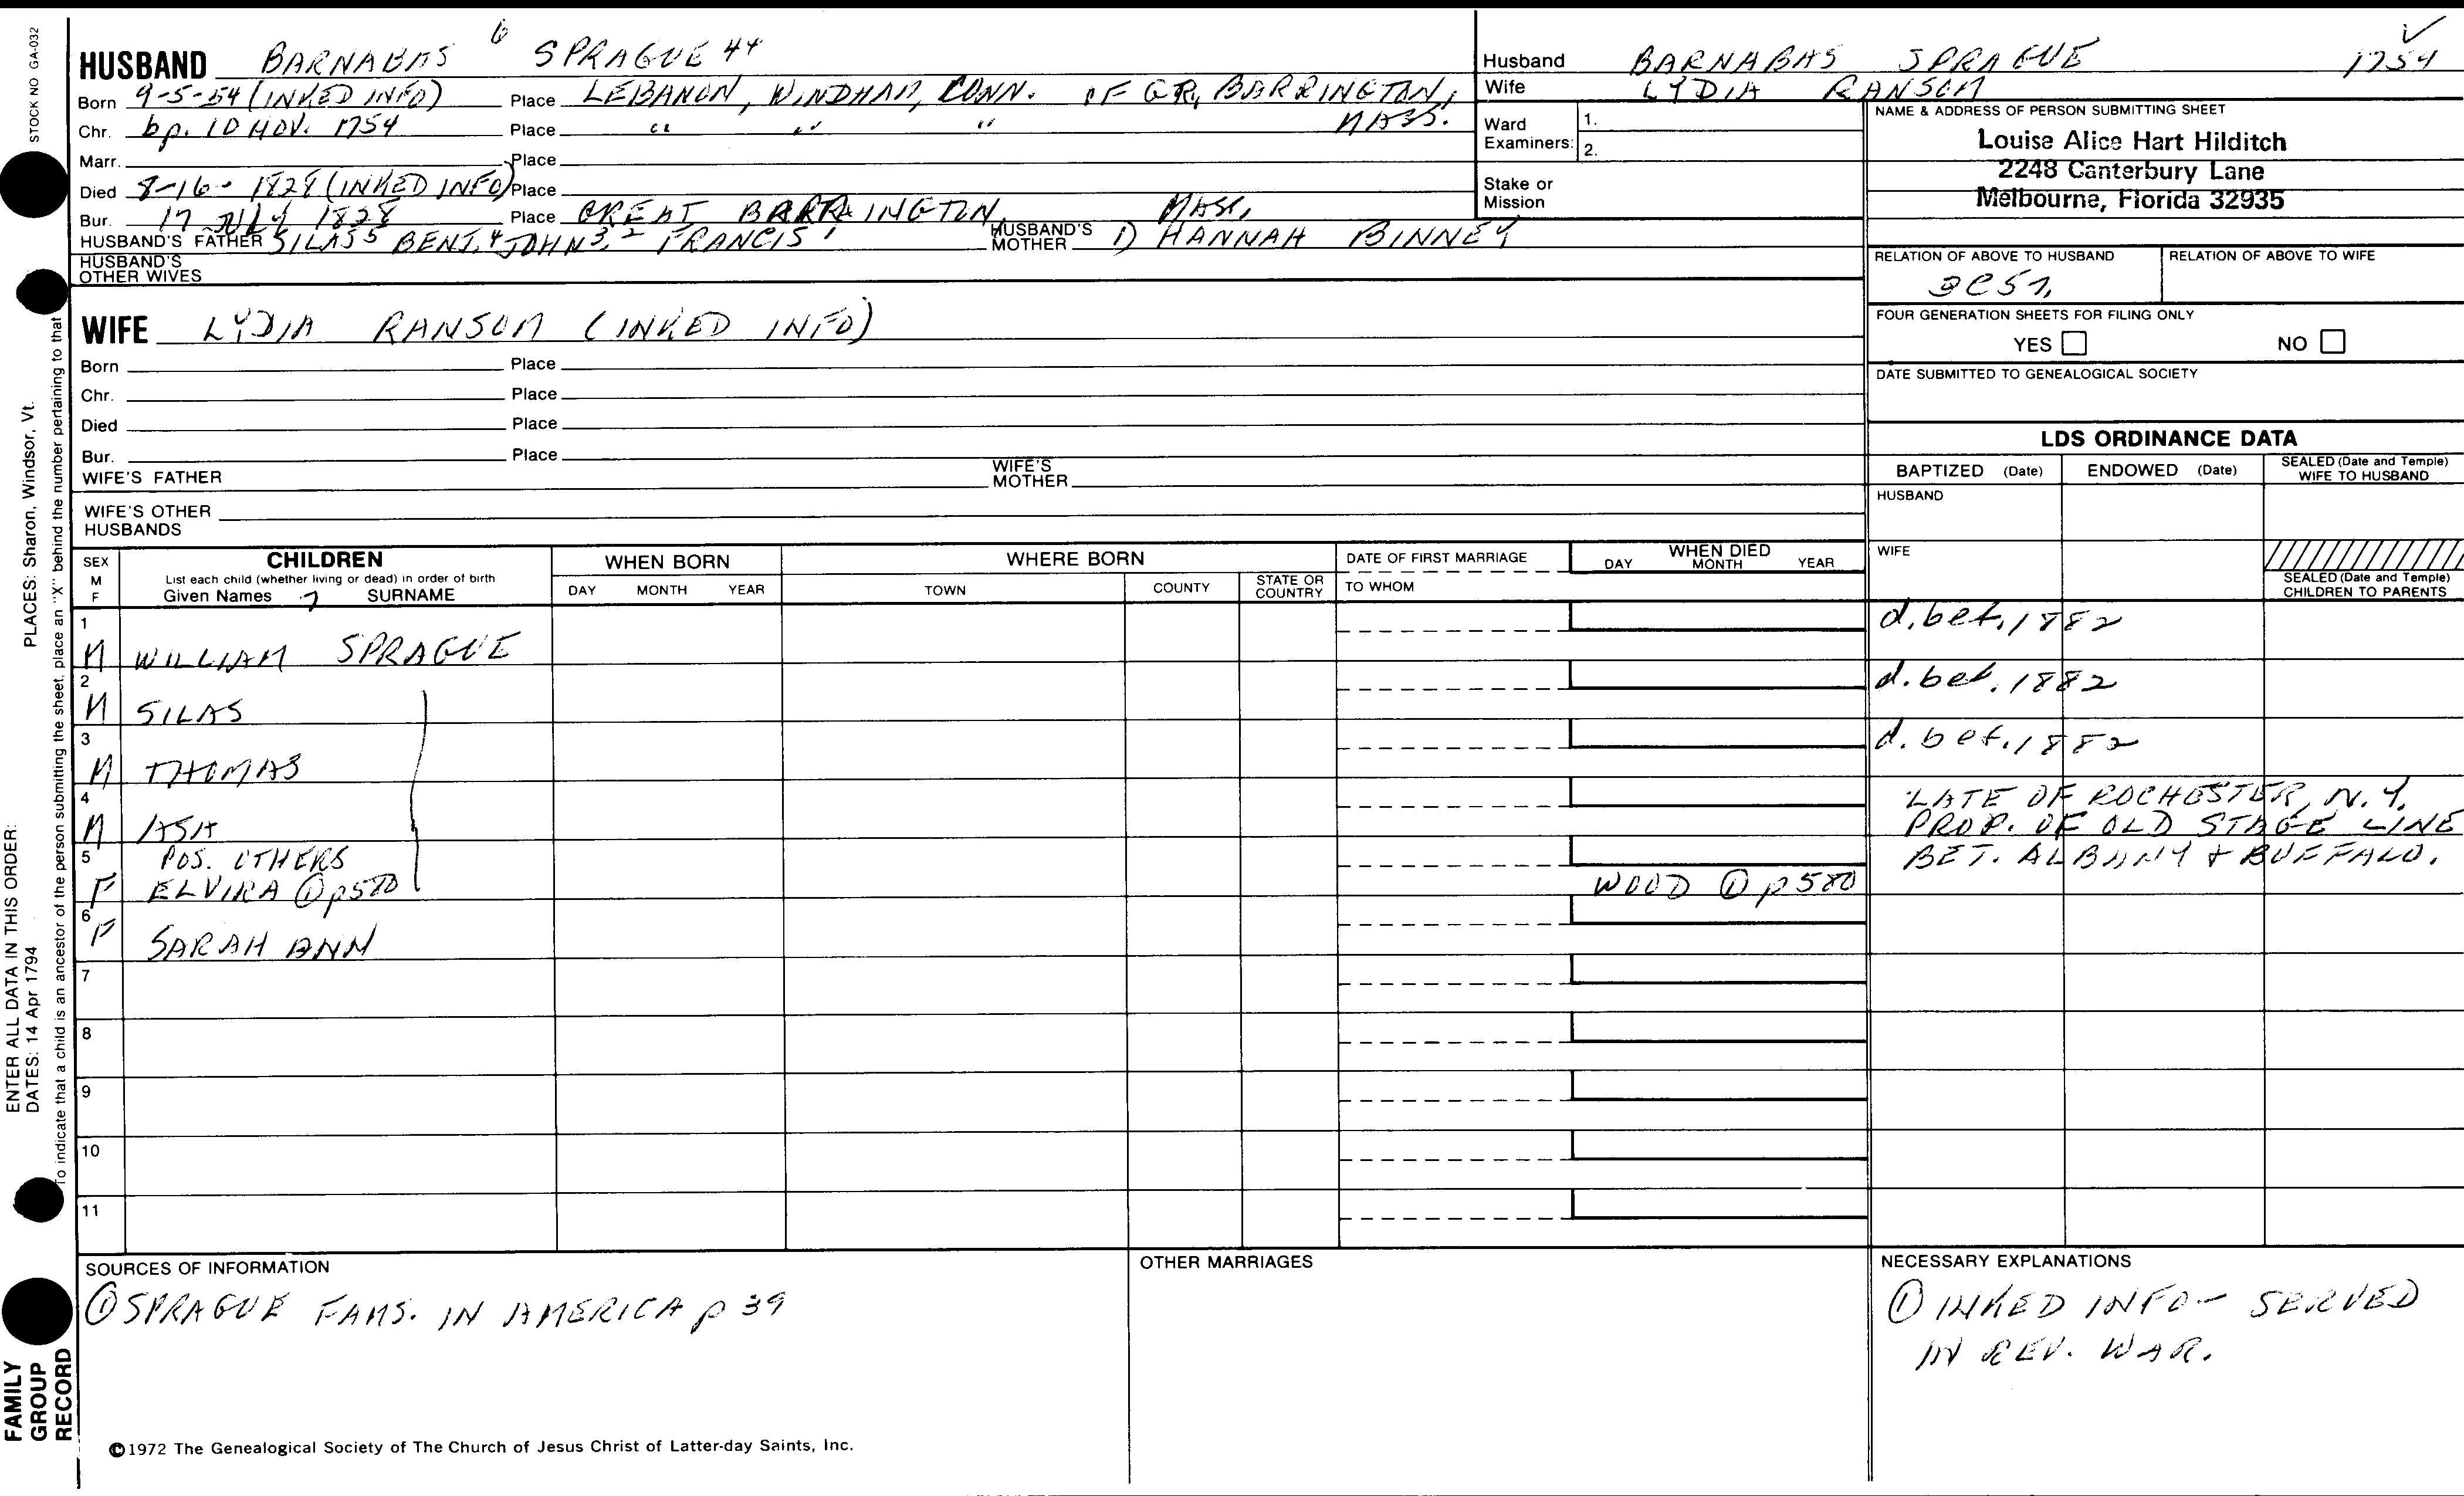 STOCK NO GA-032
HUSBAND BARNABAS 6 SPRAGUE 44
Born 9-5-54 (INKED INFO) Place LEBANON, WINDHAM, CONN. OF GR. BARRINGTON,
Chr. bp. 10 NOV. 1754 Place " " " MASS.
Marr. Place
Died 8-16- 1828 (INKED INFO) Place
Bur. 17 JULY 1828 Place GREAT BARRINGTON, MASS.
HUSBAND'S FATHER SILAS 5 BENJ. 4 JOHN 3, 2 FRANCIS 1 HUSBAND'S MOTHER 1) HANNAH BINNEY
HUSBAND'S OTHER WIVES
WIFE LYDIA RANSOM (INKED INFO)
Born Place
Chr. Place
Died Place
Bur. Place
WIFE'S FATHER WIFE'S MOTHER
WIFE'S OTHER HUSBANDS
Husband BARNABAS SPRAGUE 1754
Wife LYDIA RANSOM
Ward Examiners: 1. 2.
Stake or Mission
NAME & ADDRESS OF PERSON SUBMITTING SHEET
Louise Alice Hart Hilditch
2248 Canterbury Lane
Melbourne, Florida 32935
RELATION OF ABOVE TO HUSBAND RELATION OF ABOVE TO WIFE
FOUR GENERATION SHEETS FOR FILING ONLY
YES NO
DATE SUBMITTED TO GENEALOGICAL SOCIETY
LDS ORDINANCE DATA
BAPTIZED (Date) ENDOWED (Date) SEALED (Date and Temple) WIFE TO HUSBAND
HUSBAND
WIFE
SEALED (Date and Temple) CHILDREN TO PARENTS
SEX M F CHILDREN WHEN BORN WHERE BORN DATE OF FIRST MARRIAGE WHEN DIED
List each child (whether living or dead) in order of birth
Given Names 7 SURNAME DAY MONTH YEAR TOWN COUNTY STATE OR COUNTRY TO WHOM DAY MONTH YEAR
1 M WILLIAM SPRAGUE d. bef. 1882
2 M SILAS d. bef. 1882
3 M THOMAS d. bef. 1882
4 M ASA LATE OF ROCHESTER, N.Y.
PROP. OF OLD STAGE LINE
5 POS. OTHERS BET. ALBANY & BUFFALO.
F ELVIRA ① p580 WOOD ① p580
6 F SARAH ANN
7
8
9
10
11
SOURCES OF INFORMATION
① SPRAGUE FAMS. IN AMERICA p 39
OTHER MARRIAGES
NECESSARY EXPLANATIONS
① INKED INFO - SERVED
IN REV. WAR.
©1972 The Genealogical Society of The Church of Jesus Christ of Latter-day Saints, Inc.
ENTER ALL DATA IN THIS ORDER:
DATES: 14 Apr 1794 PLACES: Sharon, Windsor, Vt.
To indicate that a child is an ancestor of the person submitting the sheet, place an "X" behind the number pertaining to that
FAMILY GROUP RECORD